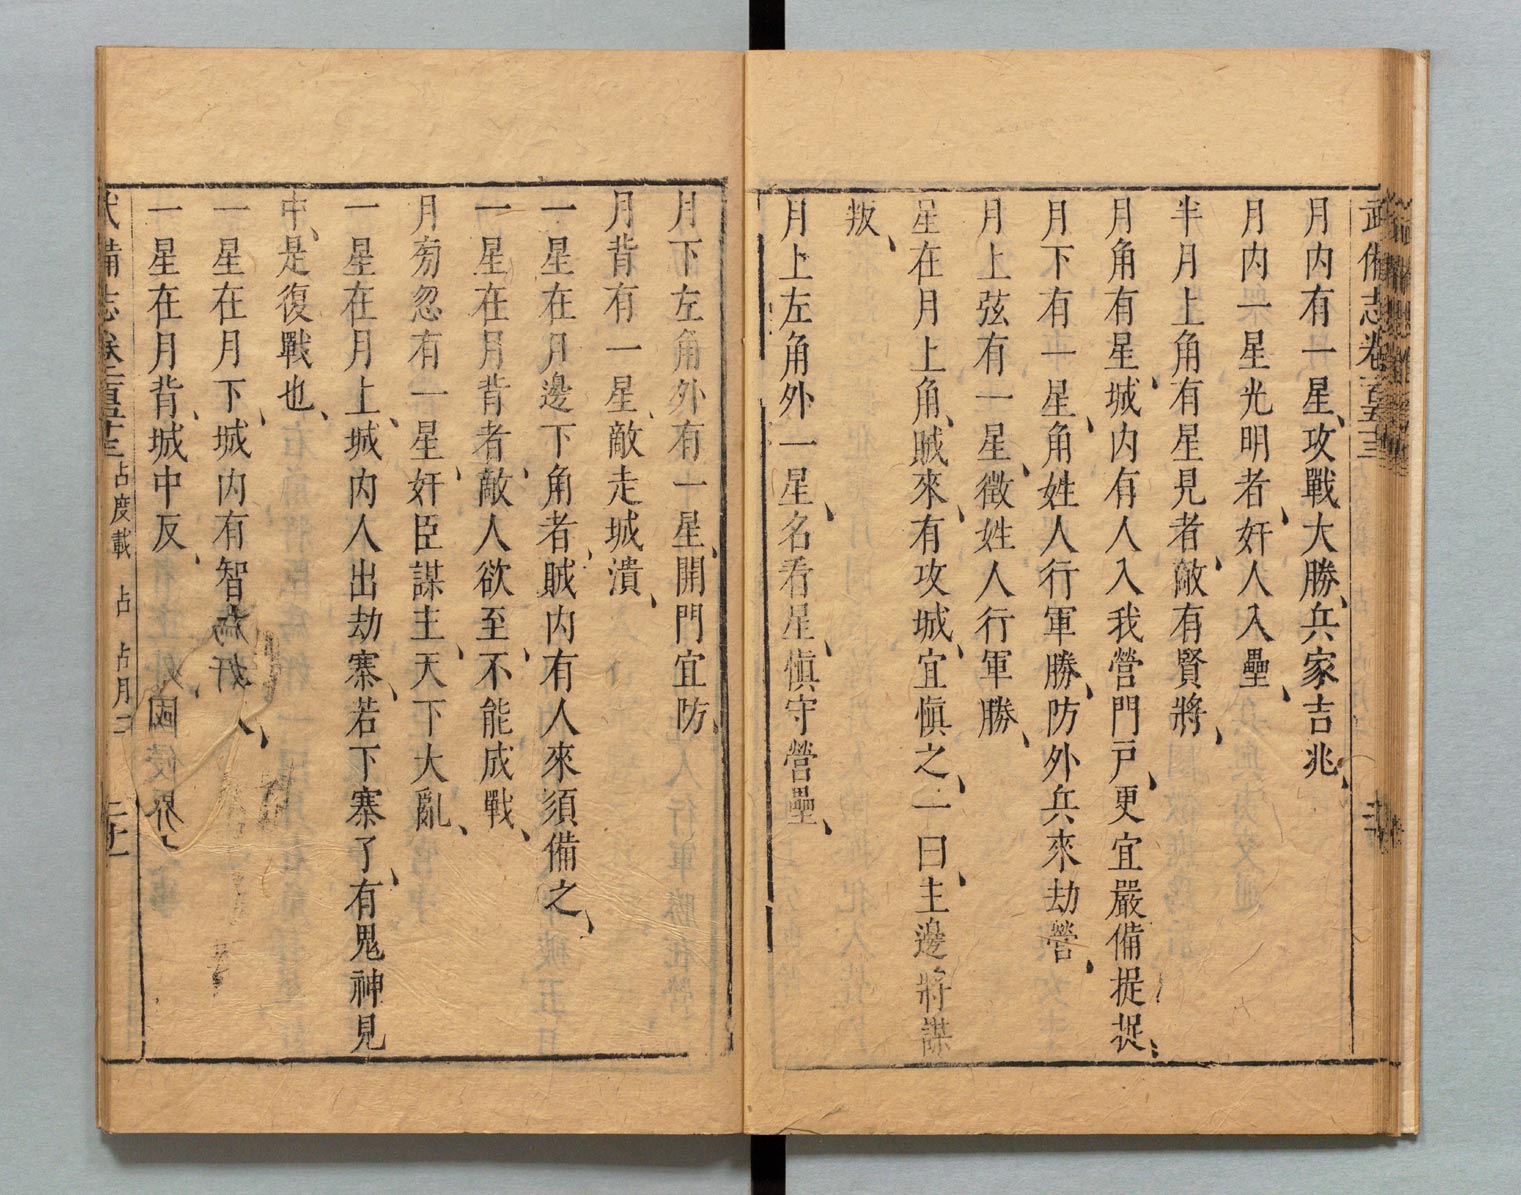 武備志卷一百五十三
月内有一星、攻戰大勝、兵家吉兆、
月内一星光明者、奸人入壘、
半月上角有星見者、敵有賢將、
月角有星、城内有人入我營門戸、更宜嚴備捉捉、
月下有一星、角姓人行軍勝、防外兵來劫營、
月上弦有一星、徵姓人行軍勝、
星在月上角、賊來、有攻城、宜慎之、一曰、主邊將謀
叛、
月上左角外一星、名看星、慎守營壘、
月下左角外有一星、開門宜防、
月背有一星、敵走城潰、
一星在月邊下角者、賊内有人來須備之、
一星在月背者、敵人欲至、不能成戰、
月旁忽有一星、奸臣謀主、天下大亂、
一星在月上、城内人出劫寨、若下寨了、有鬼神見
中、是復戰也、
一星在月下、城内有智為奸人、
一星在月背、城中反、外國侵界
武備志卷一百五十三 占度載 占 占月二 二十一